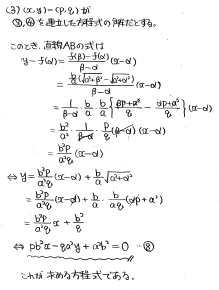 (3) (x,y)=(p,q)が
③,④を連立した方程式の解だとする。
このとき、直線ABの式は
y-f(α)=\frac{f(β)-f(α)}{β-α}(x-α)
=\frac{\frac{b}{a}(\sqrt{a²+β²}-\sqrt{a²+α²})}{β-α}(x-α)
=\frac{1}{β-α}・\frac{b}{a}・\frac{b}{a}{\frac{βp+a²}{q}-\frac{αp+a²}{q}}(x-α)
=\frac{b²}{a²}・\frac{1}{β-α}・\frac{p}{q}(β-α)(x-α)
=\frac{b²p}{a²q}(x-α)
⇔ y=\frac{b²p}{a²q}(x-α)+\frac{b}{a}\sqrt{a²+α²}
=\frac{b²p}{a²q}(x-α)+\frac{b}{a}・\frac{b}{aq}(αp+a²)
=\frac{b²p}{a²q}x+\frac{b²}{q}
⇔ pb²x-qa²y+a²b²=0 …⑧
これが求める方程式である。